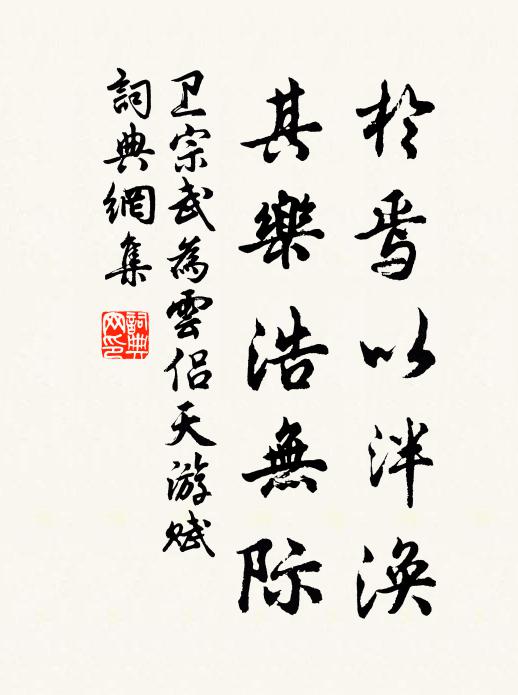 於焉以泮渙
其樂浩無际
卫宗武為雲侣天游賦
詞典網集
詞典網印